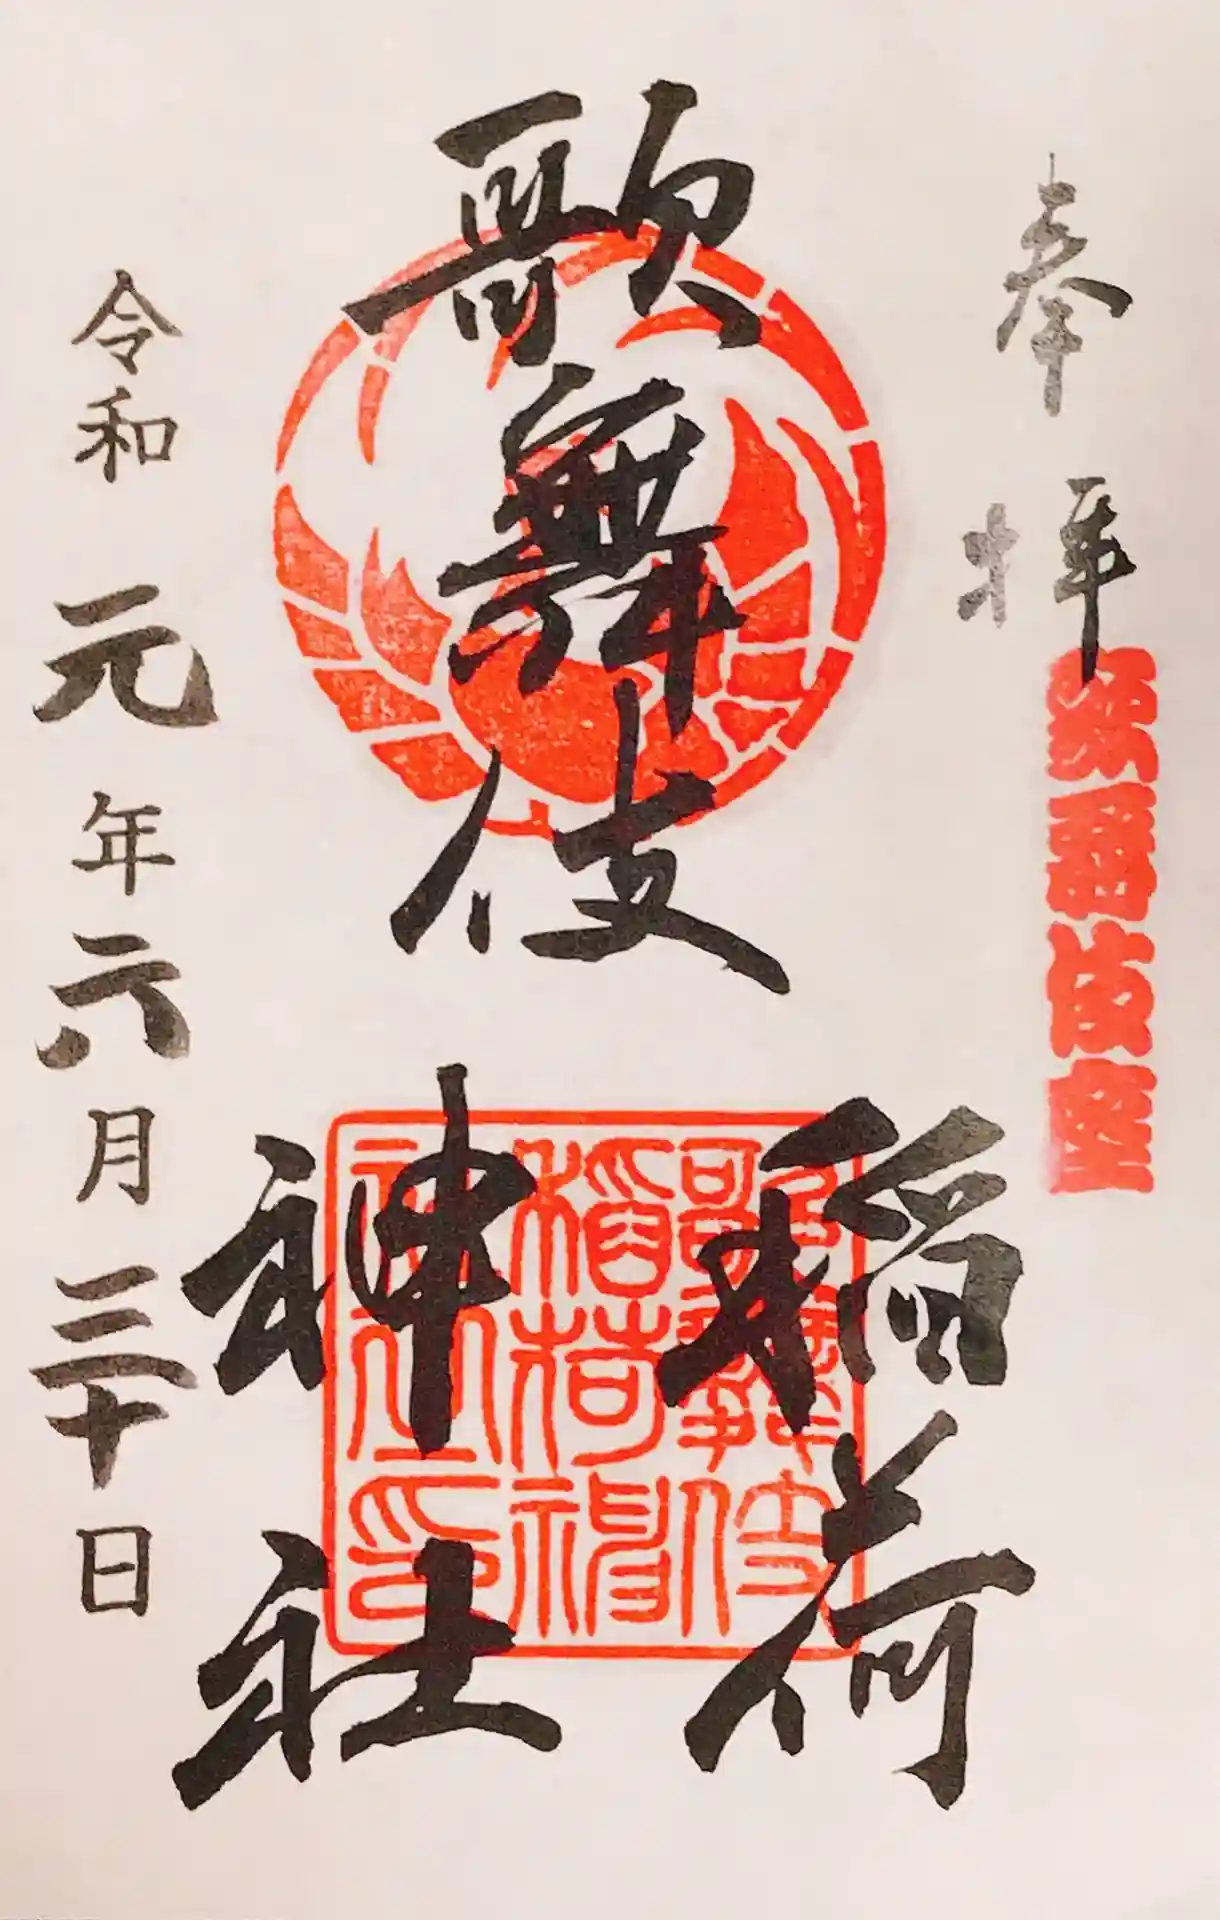 奉拝
歌舞伎座
歌舞伎
稲荷
神社
歌舞伎
稲荷神
社之印
令和元年六月三十日